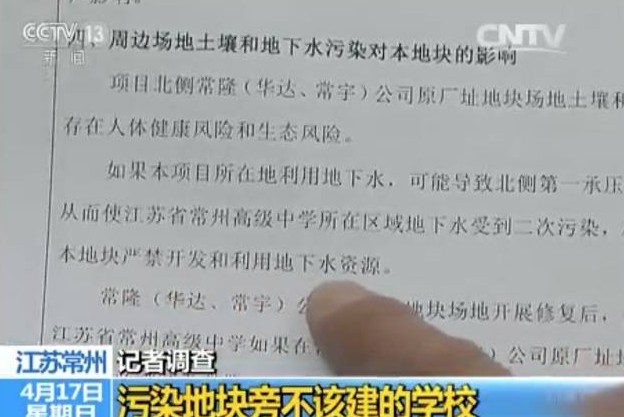 CCTV 13
新闻
CNTV
四、周边场地土壤和地下水污染对本地块的影响
项目北侧常隆（华达、常宇）公司原厂址地块场地土壤和
存在人体健康风险和生态风险。
如果本项目所在地利用地下水，可能导致北侧第一承压
从而使江苏省常州高级中学所在区域地下水受到二次污染，
本地块严禁开发和利用地下水资源。
常隆（华达、常宇）公 地块场地开展修复后，
江苏省常州高级中学如果在 公司原厂址地
江苏常州
记者调查
4月17日
星期日
污染地块旁不该建的学校